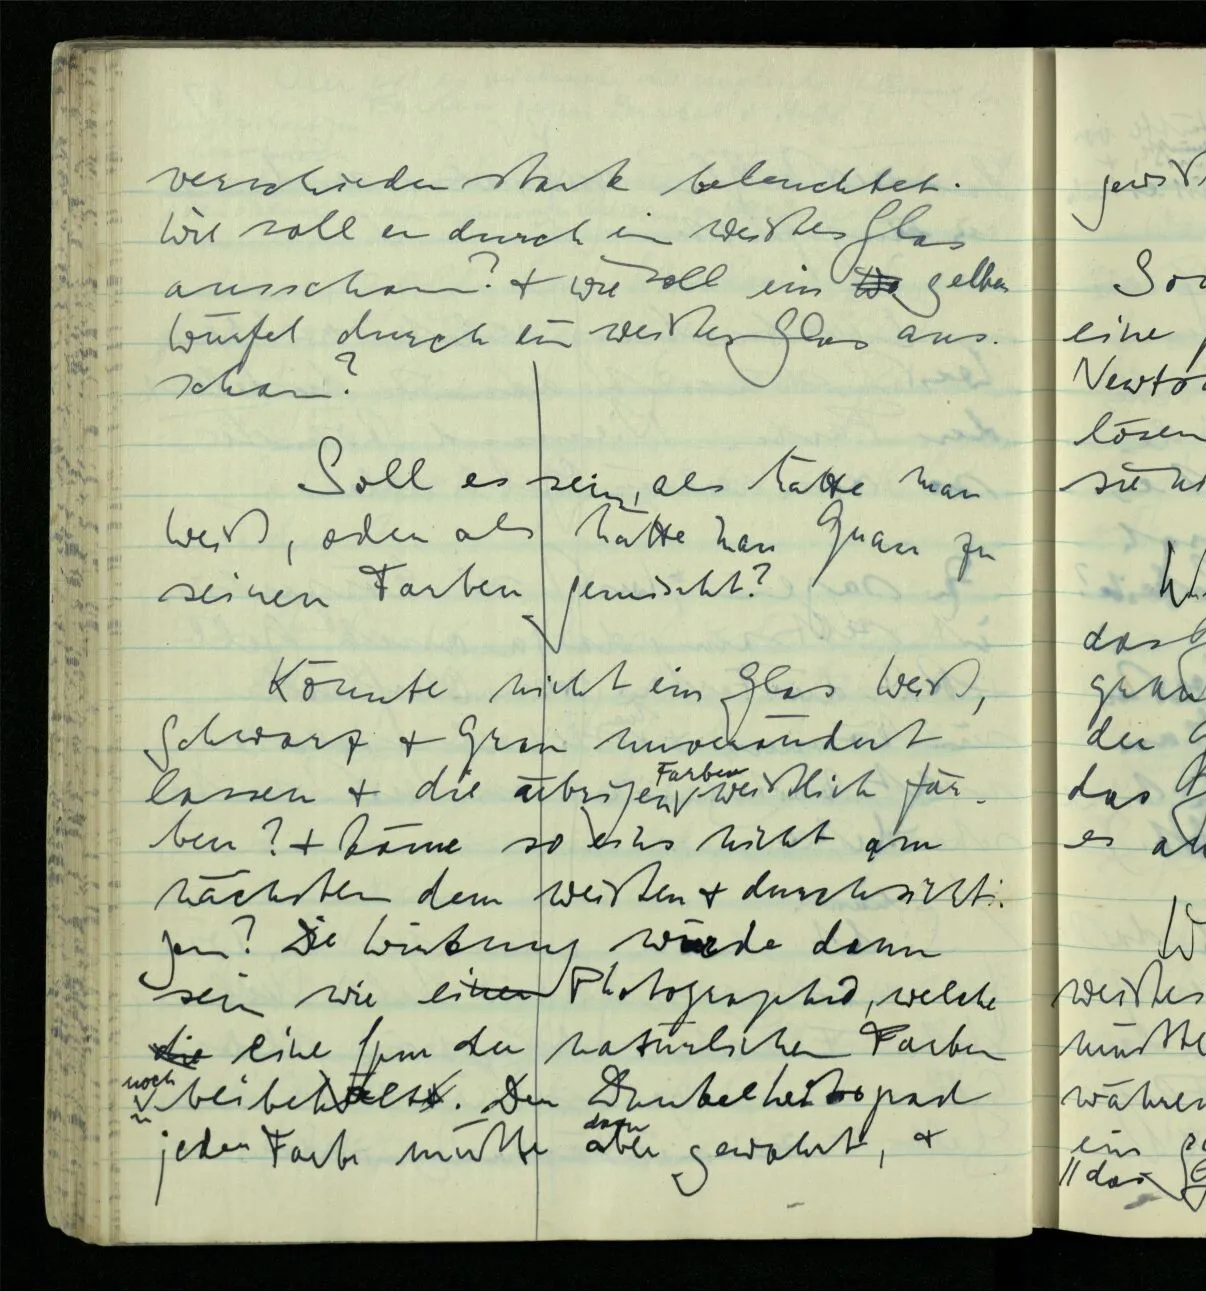 verschieden stark beleuchtet.
Wie soll er durch ein weißes Glas
ausschaun? + wie soll ein gelber
Würfel durch ein weißes Glas aus-
schaun?
Soll es sein, als hätte man
Weiß, oder als hätte man Grau zu
seinen Farben gemischt?
Könnte nicht ein Glas Weiß,
Schwarz + Grau unverändert
lassen + die übrigen Farben weißlich fär-
ben? + käme so eins nicht am
nächsten dem weißen + durchsichti-
gen? Die Wirkung würde dann
sein wie einer Photographie, welche
die eine Spur der natürlichen Farben
noch beibehält. Der Dunkelheitsgrad
jeder Farbe müßte dann aber gewahrt, +
eine
Newto
lösen
das
der
das
es
weißes
müßte
während
ein
// das